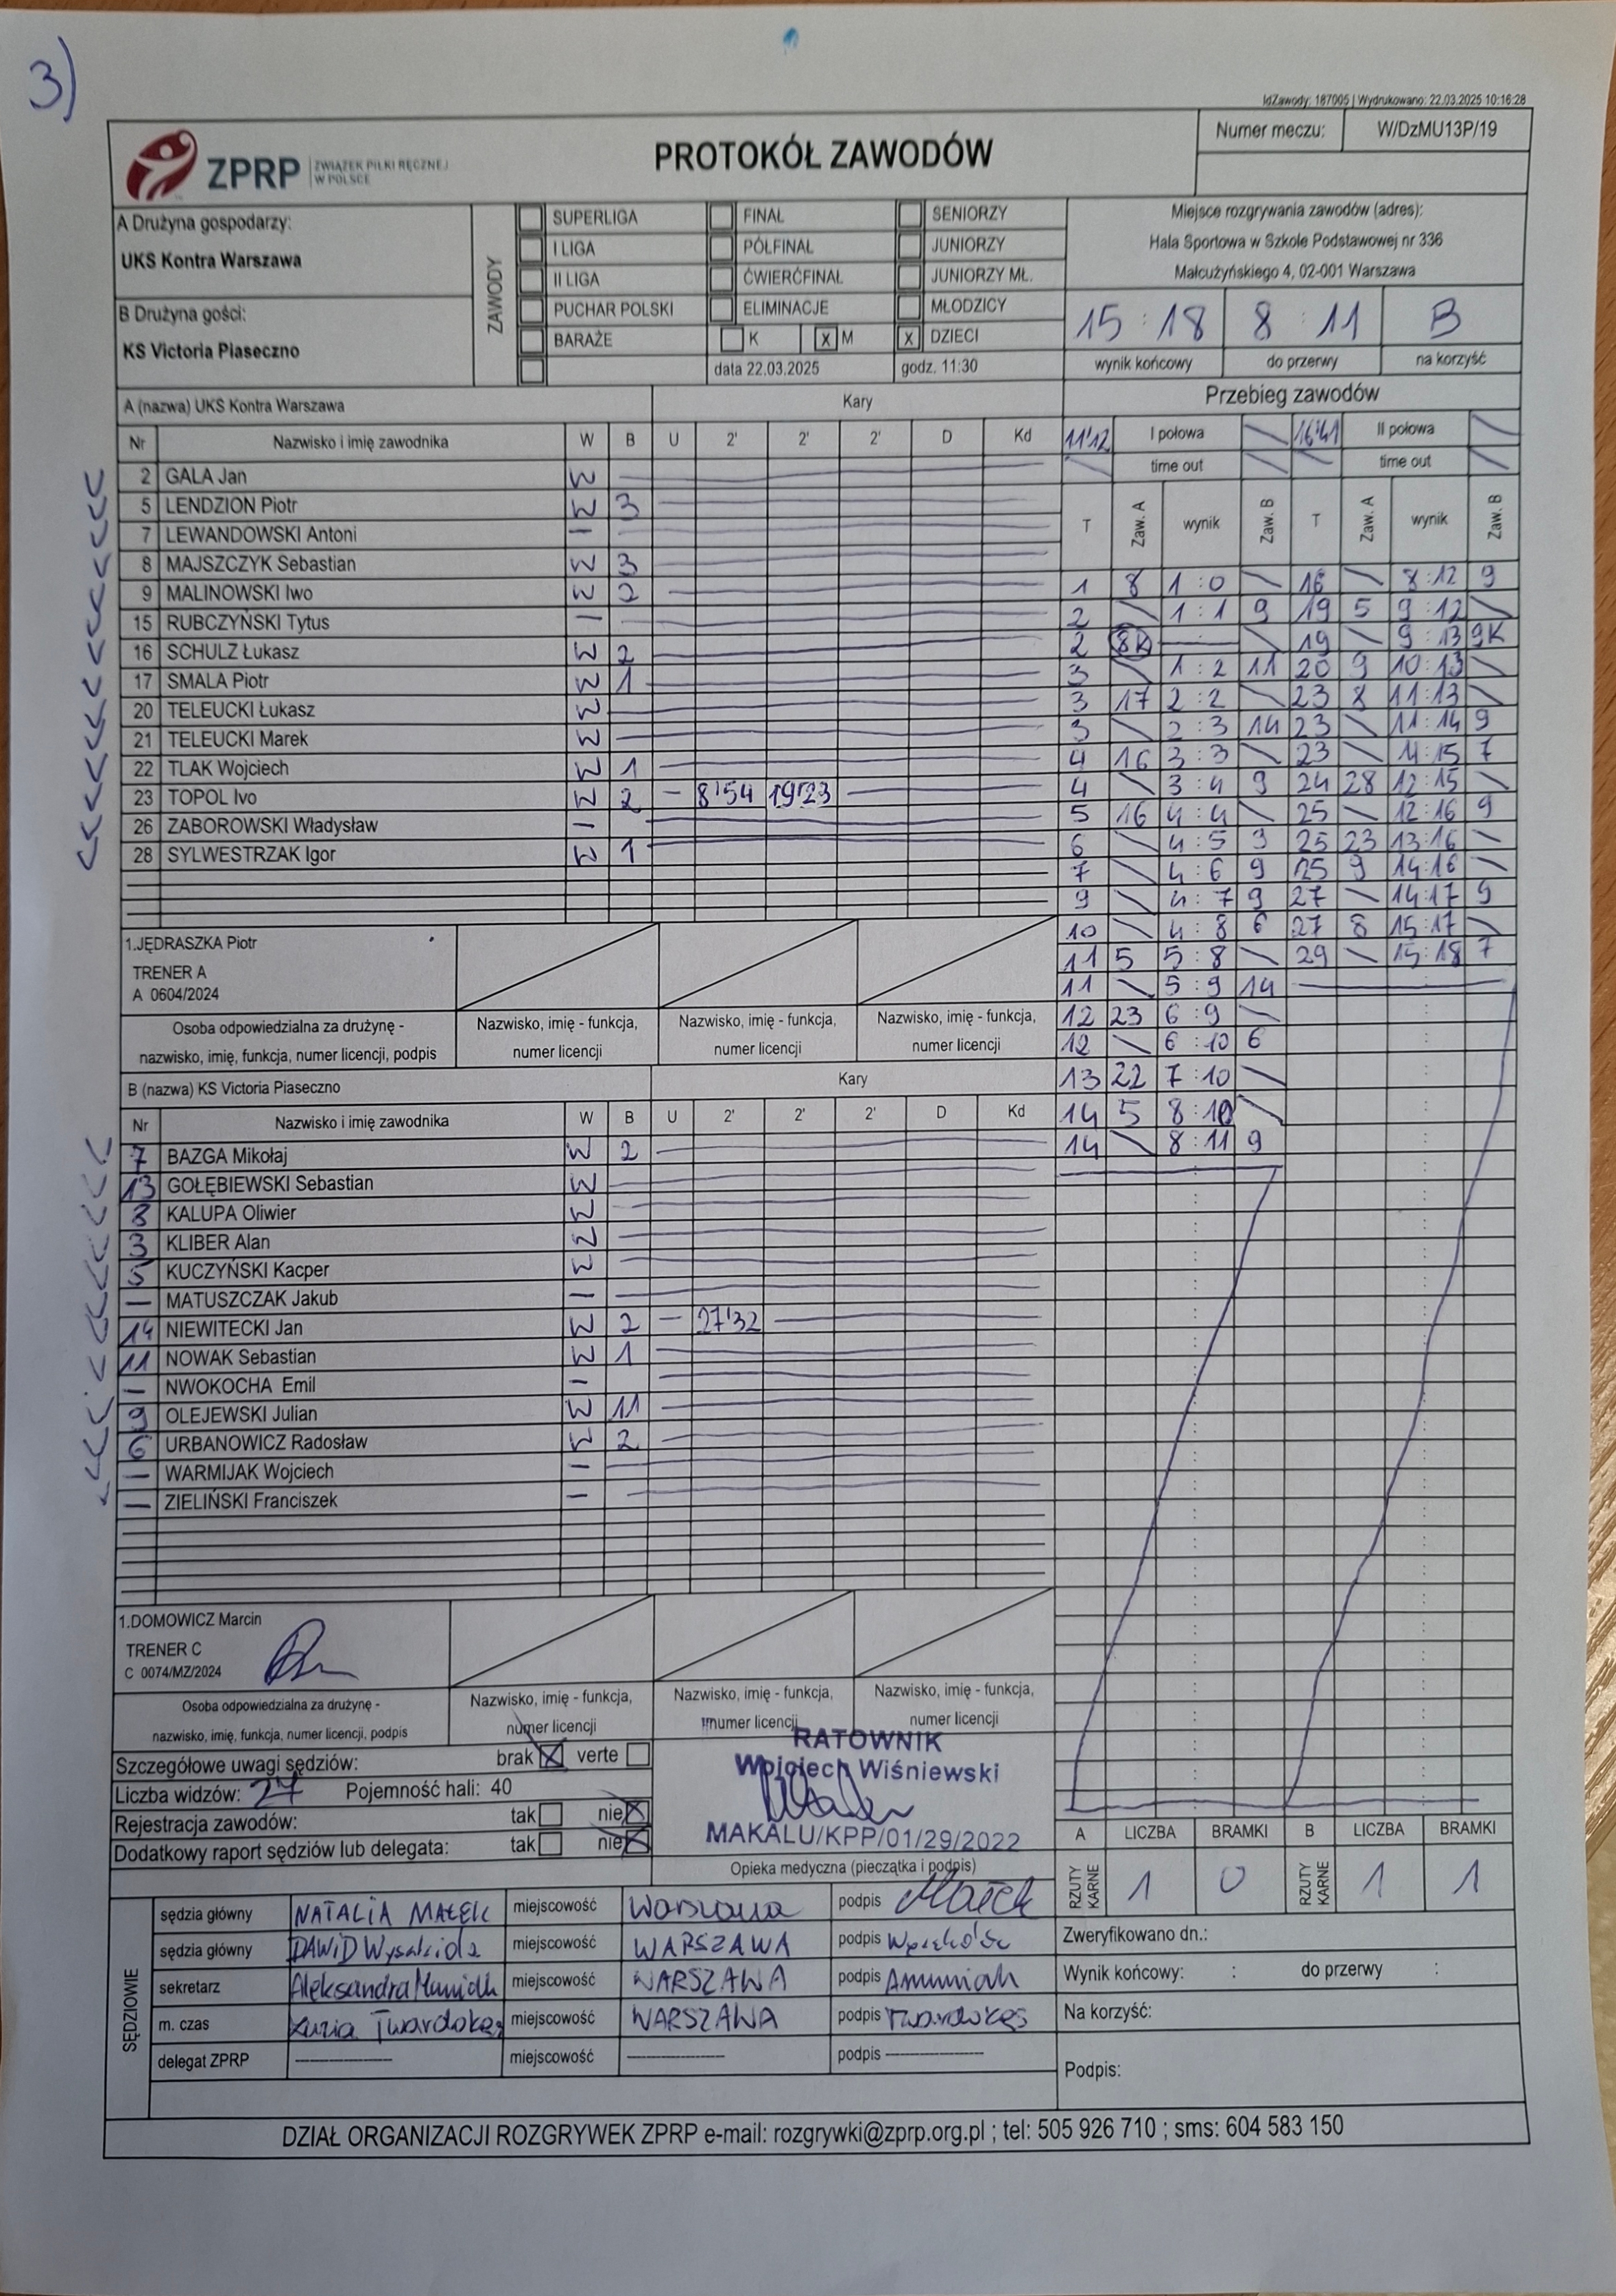 3)
IdZawody: 187005 | Wydrukowano: 22.03.2025 10:16:28
ZPRP ZWIĄZEK PIŁKI RĘCZNEJ W POLSCE
PROTOKÓŁ ZAWODÓW
Numer meczu: W/DzMU13P/19
A Drużyna gospodarzy:
UKS Kontra Warszawa
B Drużyna gości:
KS Victoria Piaseczno
ZAWODY
SUPERLIGA FINAŁ SENIORZY
I LIGA PÓŁFINAŁ JUNIORZY
II LIGA ĆWIERĆFINAŁ JUNIORZY MŁ.
PUCHAR POLSKI ELIMINACJE MŁODZICY
BARAŻE K x M x DZIECI
data 22.03.2025 godz. 11:30
Miejsce rozgrywania zawodów (adres):
Hala Sportowa w Szkole Podstawowej nr 336
Małcużyńskiego 4, 02-001 Warszawa
15 : 18 8 : 11 B
wynik końcowy do przerwy na korzyść
A (nazwa) UKS Kontra Warszawa Kary
Nr Nazwisko i imię zawodnika W B U 2' 2' 2' D Kd
2 GALA Jan W
5 LENDZION Piotr W 3
7 LEWANDOWSKI Antoni —
8 MAJSZCZYK Sebastian W 3
9 MALINOWSKI Iwo W 2
15 RUBCZYŃSKI Tytus —
16 SCHULZ Łukasz W 2
17 SMALA Piotr W 1
20 TELEUCKI Łukasz W
21 TELEUCKI Marek W
22 TLAK Wojciech W 1
23 TOPOL Ivo W 2 — 8'54 19'23
26 ZABOROWSKI Władysław —
28 SYLWESTRZAK Igor W 1
1.JĘDRASZKA Piotr
TRENER A
A 0604/2024
Osoba odpowiedzialna za drużynę - nazwisko, imię, funkcja, numer licencji, podpis
Nazwisko, imię - funkcja, numer licencji
Nazwisko, imię - funkcja, numer licencji
Nazwisko, imię - funkcja, numer licencji
B (nazwa) KS Victoria Piaseczno Kary
Nr Nazwisko i imię zawodnika W B U 2' 2' 2' D Kd
7 BAZGA Mikołaj W 2
13 GOŁĘBIEWSKI Sebastian W
8 KALUPA Oliwier W
3 KLIBER Alan W
5 KUCZYŃSKI Kacper W
— MATUSZCZAK Jakub —
14 NIEWITECKI Jan W 2 — 27'32
11 NOWAK Sebastian W 1
— NWOKOCHA Emil —
9 OLEJEWSKI Julian W 11
6 URBANOWICZ Radosław W 2
— WARMIJAK Wojciech —
— ZIELIŃSKI Franciszek —
1.DOMOWICZ Marcin
TRENER C
C 0074/MZ/2024
Osoba odpowiedzialna za drużynę - nazwisko, imię, funkcja, numer licencji, podpis
Nazwisko, imię - funkcja, numer licencji
Nazwisko, imię - funkcja, numer licencji
Nazwisko, imię - funkcja, numer licencji
Przebieg zawodów
11'12 I połowa 16'41 II połowa
time out time out
T Zaw. A wynik Zaw. B T Zaw. A wynik Zaw. B
1 8 1 : 0 \ 16 \ 8 : 12 9
2 \ 1 : 1 9 19 5 9 : 12 \
2 8K — \ 19 \ 9 : 13 9K
3 \ 1 : 2 11 20 9 10 : 13 \
3 17 2 : 2 \ 23 8 11 : 13 \
3 \ 2 : 3 14 23 \ 11 : 14 9
4 16 3 : 3 \ 23 \ 11 : 15 7
4 \ 3 : 4 9 24 28 12 : 15 \
5 16 4 : 4 \ 25 \ 12 : 16 9
6 \ 4 : 5 9 25 23 13 : 16 \
7 \ 4 : 6 9 25 9 14 : 16 \
9 \ 4 : 7 9 27 \ 14 : 17 9
10 \ 4 : 8 6 27 8 15 : 17 \
11 5 5 : 8 \ 29 \ 15 : 18 7
11 \ 5 : 9 14
12 23 6 : 9 \
12 \ 6 : 10 6
13 22 7 : 10 \
14 5 8 : 10 \
14 \ 8 : 11 9
Szczegółowe uwagi sędziów: brak X verte
Liczba widzów: 27 Pojemność hali: 40
Rejestracja zawodów: tak nie X
Dodatkowy raport sędziów lub delegata: tak nie X
RATOWNIK
Wojciech Wiśniewski
MAKALU/KPP/01/29/2022
Opieka medyczna (pieczątka i podpis)
A LICZBA BRAMKI B LICZBA BRAMKI
RZUTY KARNE 1 0 RZUTY KARNE 1 1
SĘDZIOWIE
sędzia główny NATALIA MAŁEK miejscowość Warszawa podpis Małek
sędzia główny DAWID miejscowość WARSZAWA podpis
sekretarz Aleksandra miejscowość WARSZAWA podpis
m. czas Zuzia Twardokęs miejscowość WARSZAWA podpis Twardokęs
delegat ZPRP — miejscowość — podpis —
Zweryfikowano dn.:
Wynik końcowy: : do przerwy :
Na korzyść:
Podpis:
DZIAŁ ORGANIZACJI ROZGRYWEK ZPRP e-mail: rozgrywki@zprp.org.pl ; tel: 505 926 710 ; sms: 604 583 150